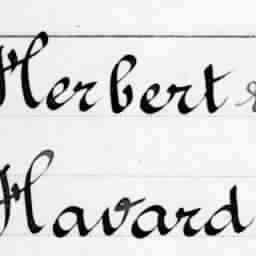 Herbert
Havard